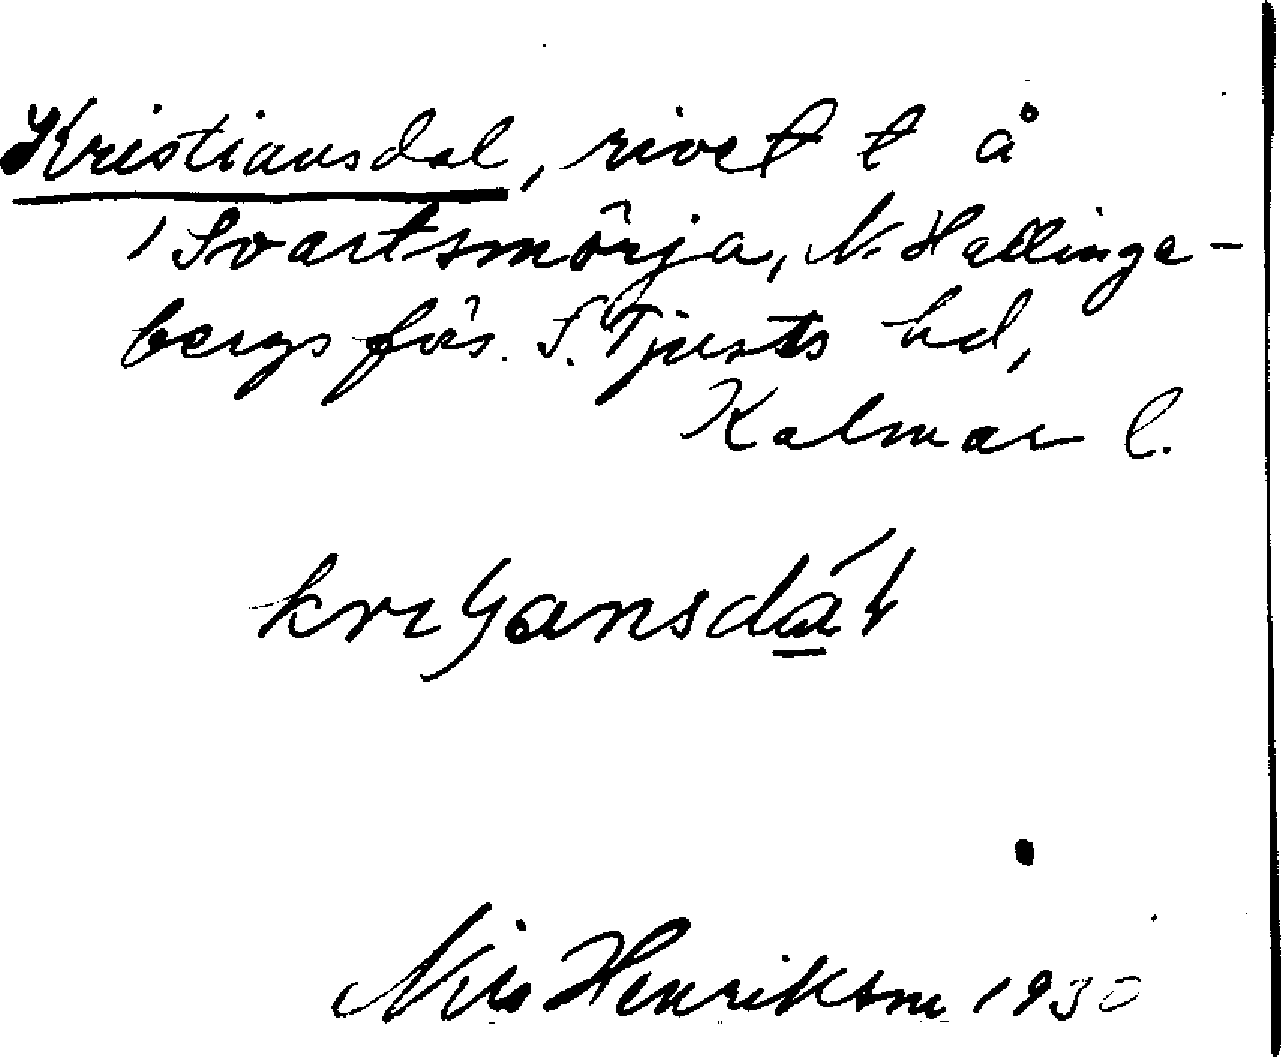 Kristiansdal, rivet t å
/ Svartsmörja, N. Hallinge-
bergs förs. S. Tjusts hd,
Kalmar l.
Nils Henriksson 1930